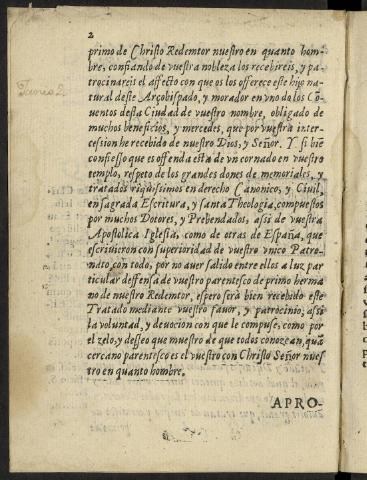 2
primo de Christo Redemtor nuestro en quanto hom-
bre, confiando de vuestra nobleza los recebireis, y pa-
trocinareis el affecto con que os los offerece este hijo na-
tural deste Arçobispado, y morador en vno de los Cō
uentos desta Ciudad de vuestro nombre, obligado de
muchos beneficios, y mercedes, que por vuestra inter-
cession he recebido de nuestro Dios, y Señor. Y si biē
confiesso que es offenda esta de vn cornado en vuestro
templo, respeto de los grandes dones de memoriales, y
tratados riquissimos en derecho Canonico, y Ciuil,
en sagrada Escritura, y santa Theologia, compuestos
por muchos Dotores, y Prebendados, assi de vuestra
Apostolica Iglesia, como de otras de España, que
escriuieron con superioridad de vuestro vnico Patro-
nato, con todo, por no auer salido entre ellos a luz par
ticular deffensa de vuestro parentesco de primo herma
no de nuestro Redemtor, espero será bien recebido este
Tratado mediante vuestro fauor, y patrocinio; assi
la voluntad, y deuocion con que le compuse, como por
el zelo, y desseo que muestro de que todos conozcan, quā
cercano parentesco es el vuestro con Christo Señor nues
tro en quanto hombre.
APRO-